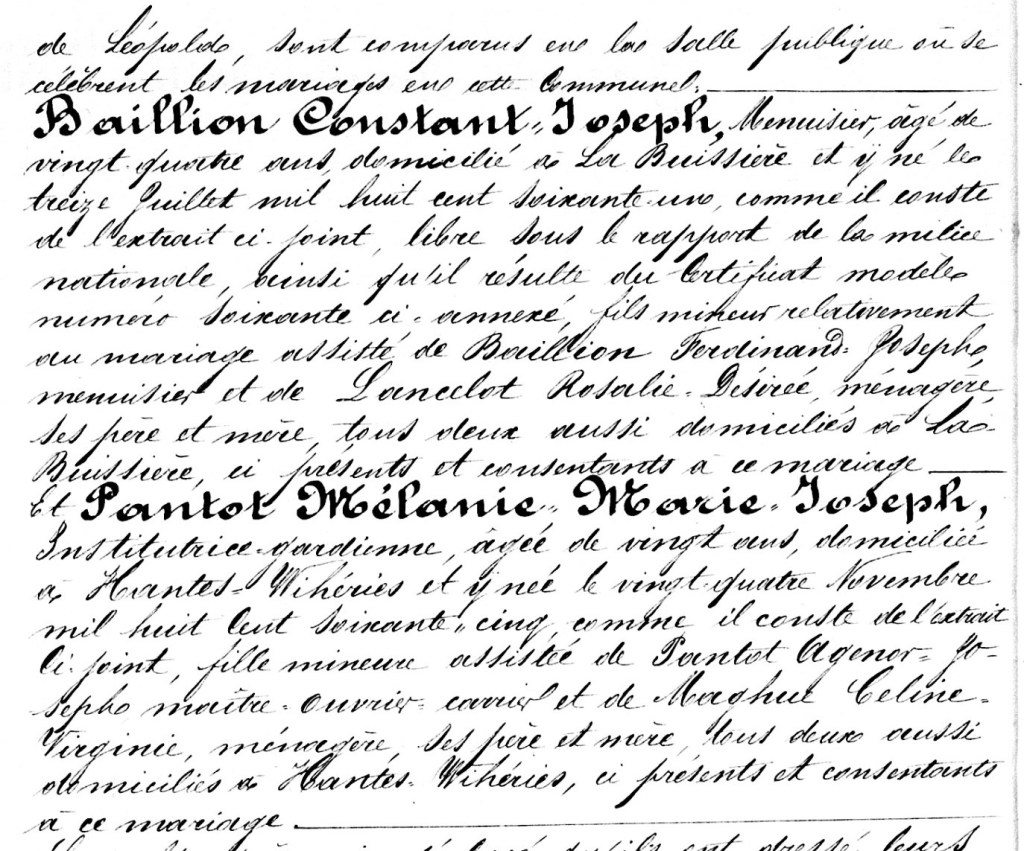 de Léopold, sont comparus en la salle publique où se
célèbrent les mariages en cette Commune.
Baillion Constant-Joseph, Menuisier, âgé de
vingt-quatre ans, domicilié à La Buissière et y né le
treize Juillet mil huit cent soixante-un, comme il conste
de l'extrait ci-joint, libre sous le rapport de la milice
nationale, ainsi qu'il résulte du Certificat modèle
numéro soixante ci-annexé, fils mineur relativement
au mariage assisté de Baillion Ferdinand-Joseph,
menuisier et de Lancelot Rosalie-Désirée, ménagère,
ses père et mère, tous deux aussi domiciliés à La-
Buissière, ci présents et consentants à ce mariage
Et Pantot Mélanie-Marie-Joseph,
Institutrice-gardienne, âgée de vingt ans, domiciliée
à Hantes-Wihéries et y née le vingt-quatre Novembre
mil huit Cent soixante-cinq, comme il conste de l'extrait
Ci-joint, fille mineure assistée de Pantot Agenor-Jo-
seph maître-ouvrier-carrier et de Maghue Celine-
Virginie, ménagère, ses père et mère, tous deux aussi
domiciliés à Hantes-Wihéries, ci présents et consentants
à ce mariage.
qu'ils ont dressé leurs